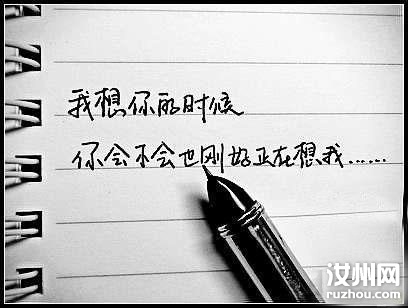 我想你的时候
你会不会也刚好正在想我......
汝州网
ruzhou.com